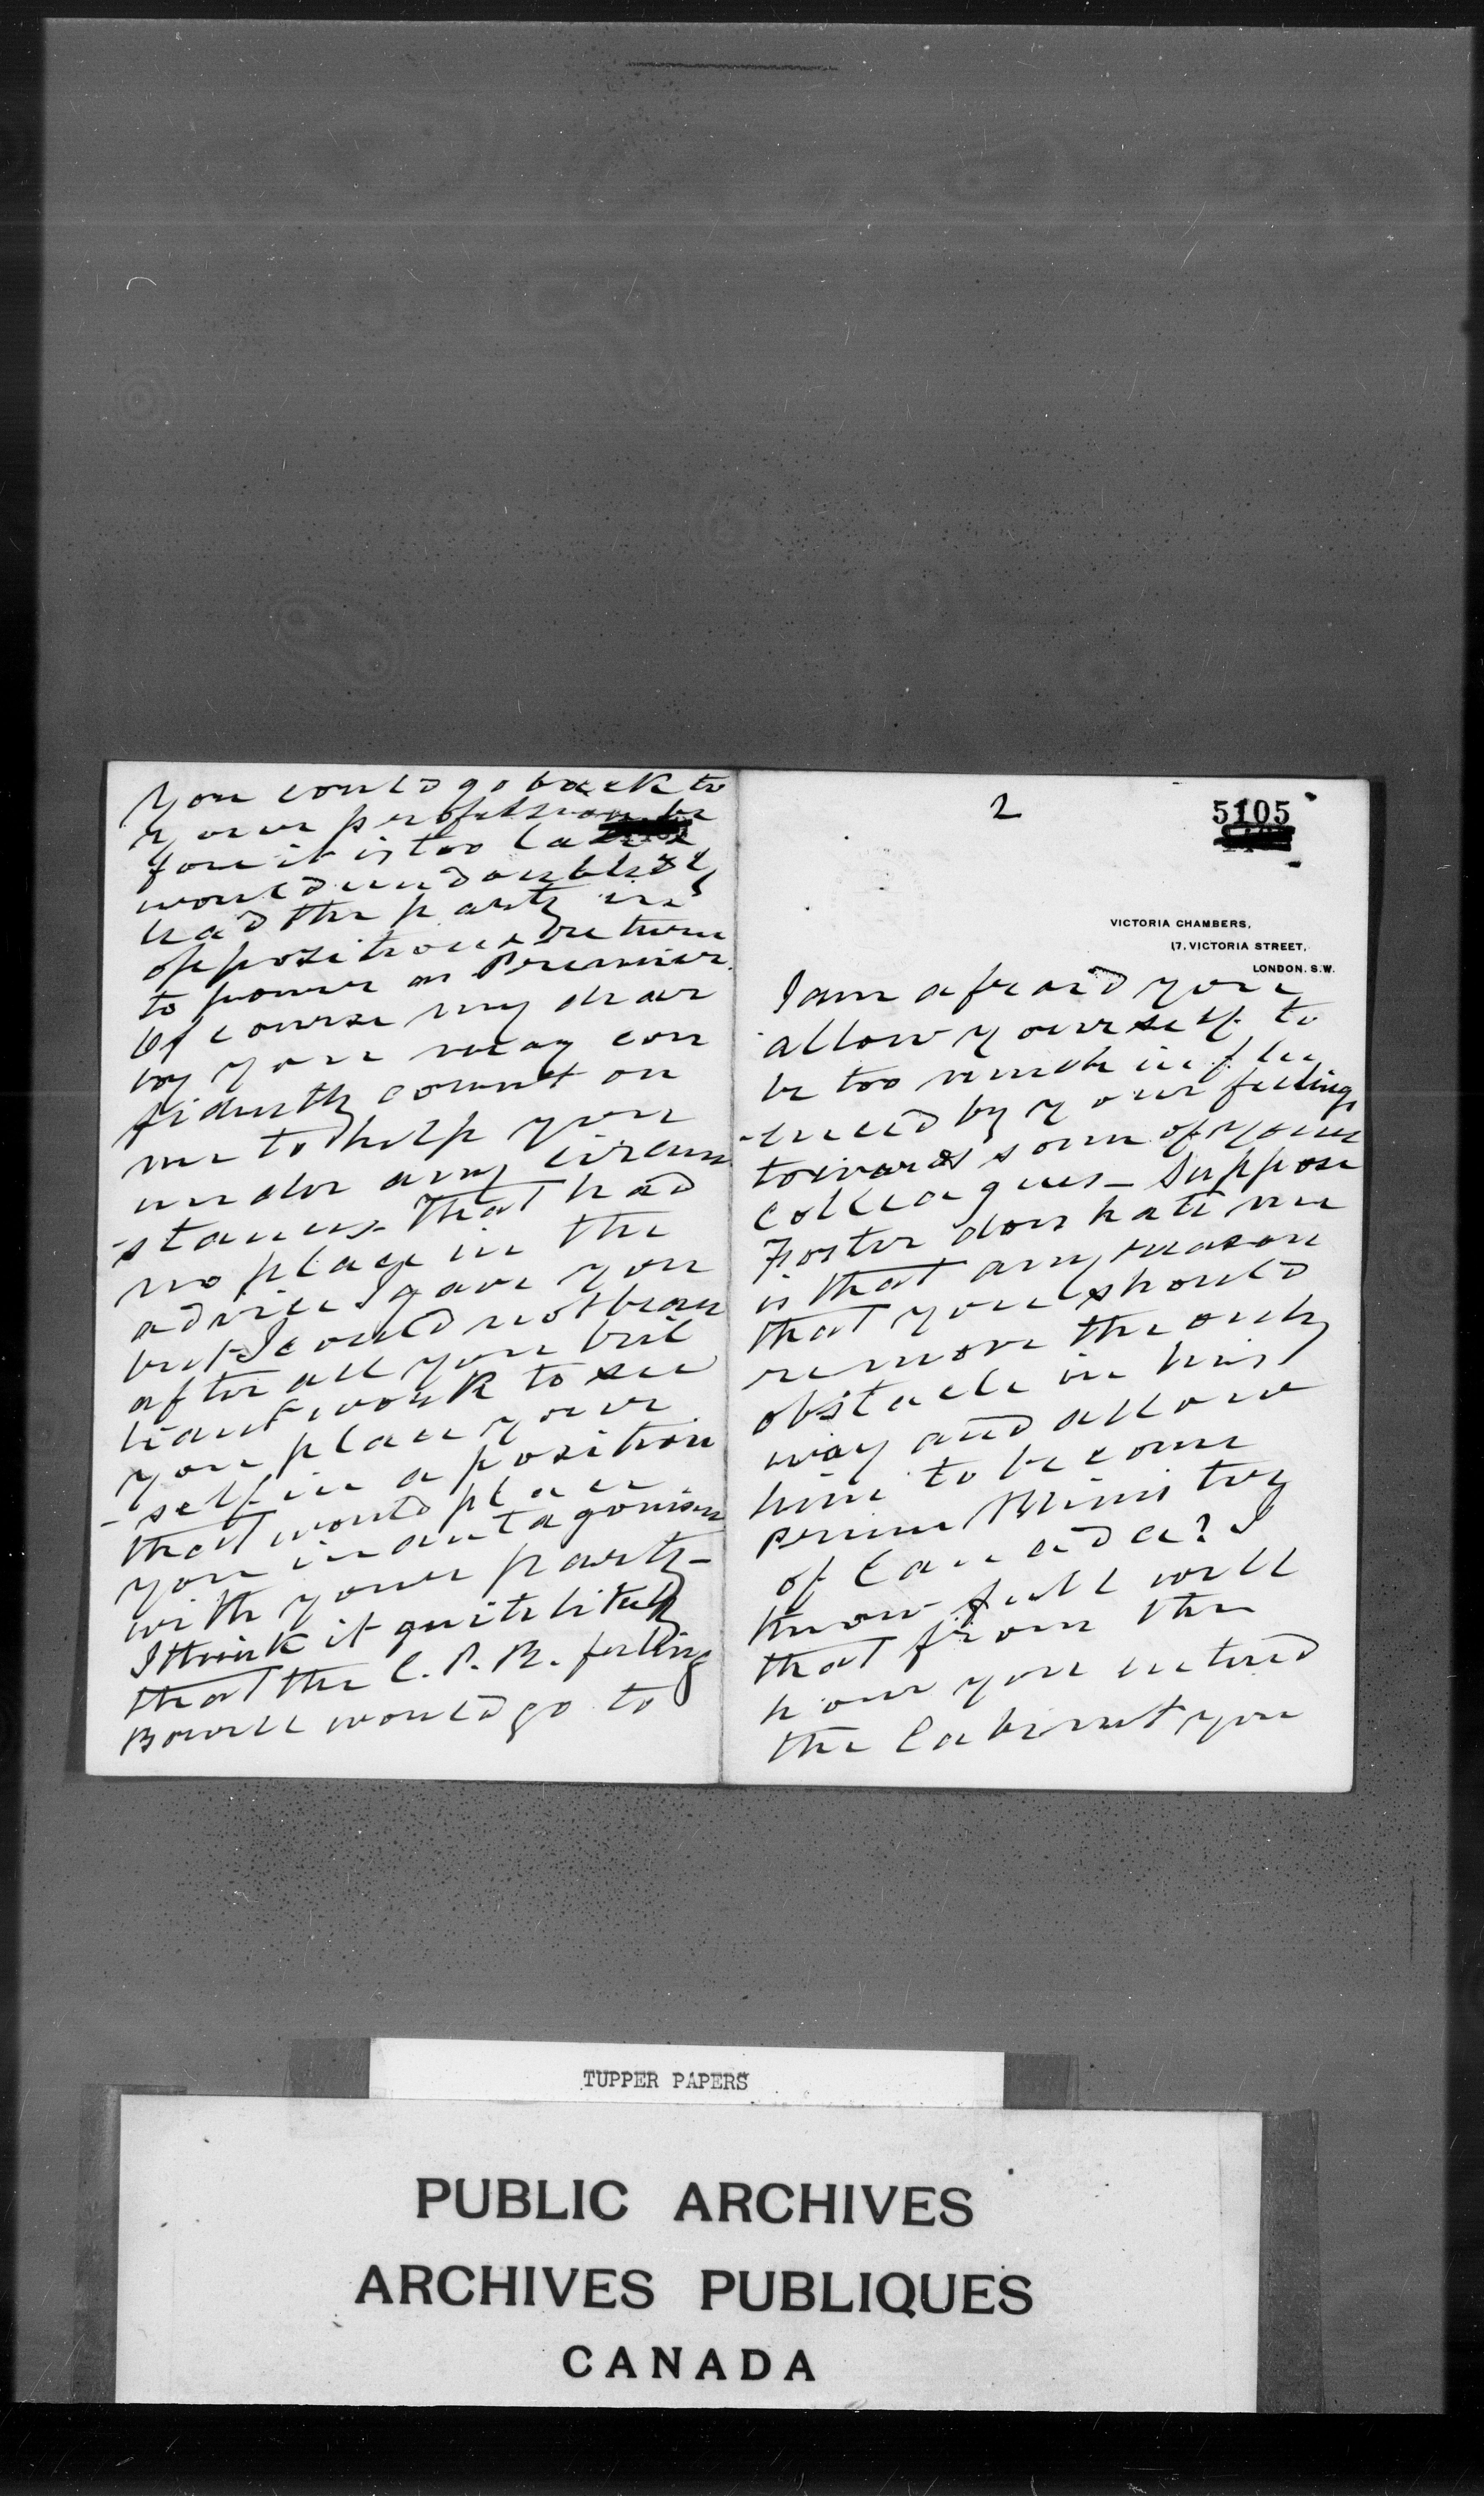 You could go back to
your profession be
fore it is too late &
would undoubtedly
lead the party in
opposition & return
to power as Premier.
Of course my dear
boy you may con
fidently count on
me to help you
under any circum
-stances. That had
no place in the
advice I gave you
but I could not bear
after all your bril
liant work to see
you place your
-self in a position
that would place
you in antagonism
with your party-
I think it quite likely
that the C. P. R. feeling
Bowell would go to
2
5105
VICTORIA CHAMBERS,
17, VICTORIA STREET,
LONDON. S.W.
I am afraid you
allow yourself to
be too much influ
-enced by your feelings
towards some of your
colleagues - Suppose
Foster does hate me
is that any reason
that you should
remove the only
obstacle in his
way and allow
him to become
prime Minister
of Canada? I
know full well
that from the
hour you entered
the Cabinet you
TUPPER PAPERS
PUBLIC ARCHIVES
ARCHIVES PUBLIQUES
CANADA